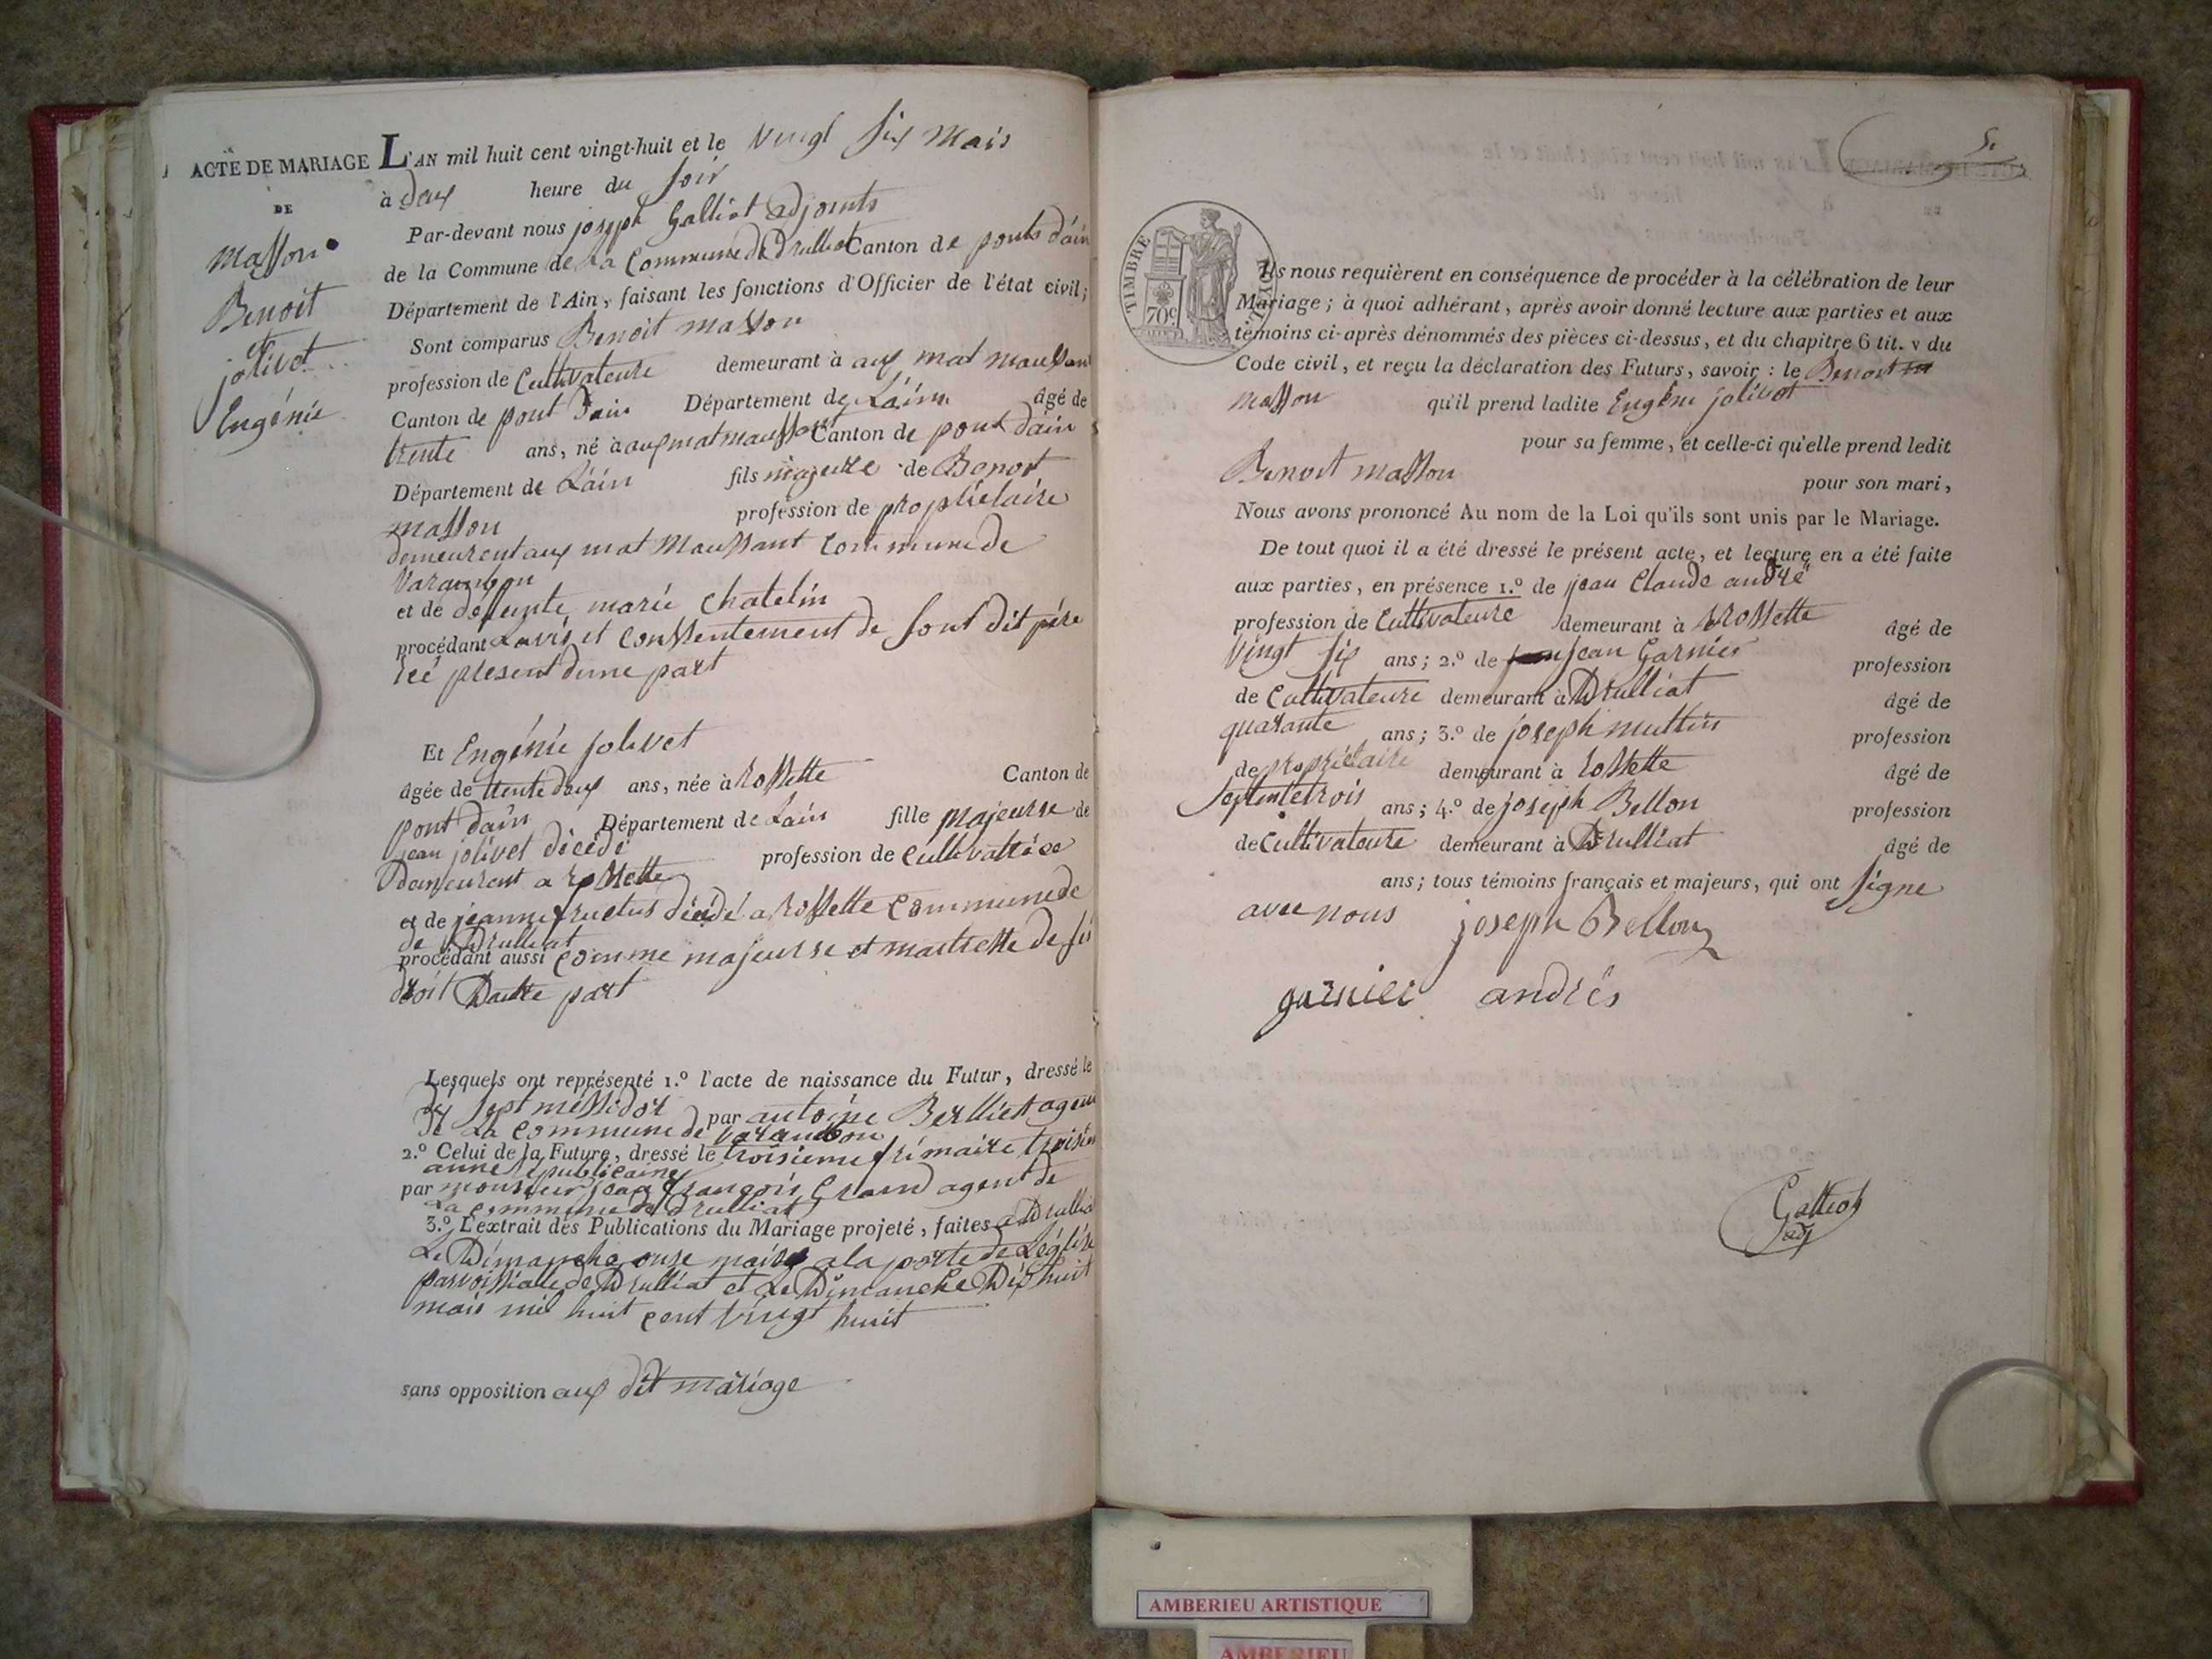 ACTE DE MARIAGE
DE
Masson
Benoit
et
jolivet
Eugénie
L'AN mil huit cent vingt-huit et le vingt six mars
à deux heure du soir
Par-devant nous joseph Galliot adjoints
de la Commune de La Commune de Drulliat Canton de ponts dain
Département de l'Ain, faisant les fonctions d'Officier de l'état civil;
Sont comparus Benoit masson
profession de Cultivateure demeurant à aux mat maussant
Canton de pont Dain Département de Lain âgé de
trente ans, né à aux mat maussant Canton de pont dain
Département de Lain fils majeure de Benoit
masson profession de propriétaire
demeurent aux mat Maussant Commune de
Varambon
et de défunte marie Chatelin
procédant Lavis et Conssentement de sont dit père
icé présent dune part
Et Eugénie jolivet
âgée de trente deux ans, née à rossette Canton de
pont dain Département de Lain fille majeurse de
jean jolivet décédé profession de Cultivatrice
demeurent a rossette
et de jeanne fructus décédé a rossette Commune de
de Drulliat
procédant aussi comme majeurse et maitresse de ses
droit Dautre part
Lesquels ont représenté 1.º l'acte de naissance du Futur, dressé le
dix sept messidor par antoine Berlliet agent
de La Commune de varambon
2.º Celui de la Future, dressé le troisieme frimaire troisiem
anne republicaine
par monsieur jean françois agent de
La Commune de Drulliat
3.º L'extrait des Publications du Mariage projeté, faites a Drulliat
Le Dimanche onze mars a la porte de Léglise
paroissiale de Drulliat et Le Dimanche Dix huit
mars mil huit cent vingt huit
sans opposition aux dit mariage
5.
TIMBRE ROYAL
70c
Ils nous requièrent en conséquence de procéder à la célébration de leur
Mariage; à quoi adhérant, après avoir donné lecture aux parties et aux
témoins ci-après dénommés des pièces ci-dessus, et du chapitre 6 tit. v du
Code civil, et reçu la déclaration des Futurs, savoir : le Benoit
masson qu'il prend ladite Eugénie jolivet
pour sa femme, et celle-ci qu'elle prend ledit
Benoit masson pour son mari,
Nous avons prononcé Au nom de la Loi qu'ils sont unis par le Mariage.
De tout quoi il a été dressé le présent acte, et lecture en a été faite
aux parties, en présence 1.º de jean Claude andré
profession de Cultivateure demeurant à rossette âgé de
vingt six ans; 2.º de jean Garnier profession
de Cultivateure demeurant à Drulliat âgé de
quarante ans; 3.º de joseph muttin profession
de propriétaire demeurant à rossette âgé de
septente trois ans; 4.º de joseph Bellon profession
de Cultivateure demeurant à Drulliat âgé de
ans; tous témoins français et majeurs, qui ont signe
avec nous joseph Bellon
garnier andrés
Galliot
adj
AMBERIEU ARTISTIQUE
AMBERIEU